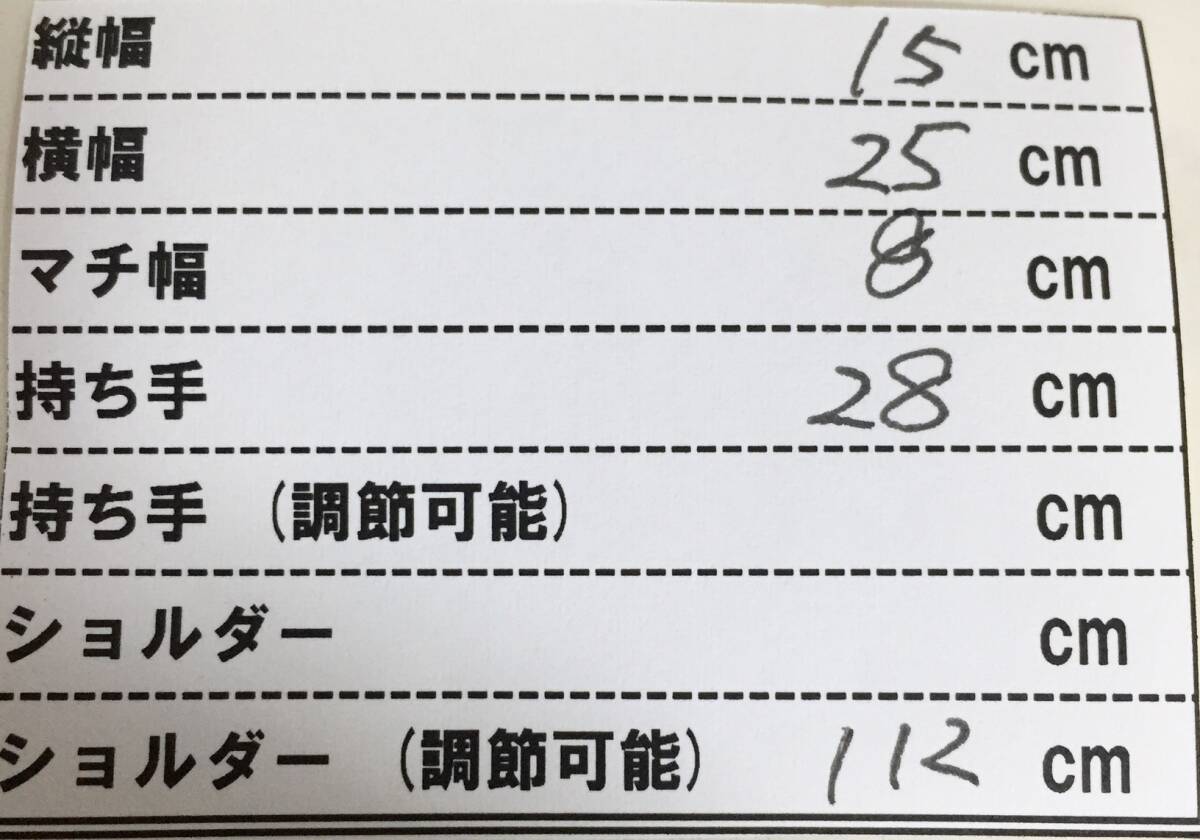 縦幅 15 cm
横幅 25 cm
マチ幅 8 cm
持ち手 28 cm
持ち手 (調節可能) cm
ショルダー cm
ショルダー (調節可能) 112 cm